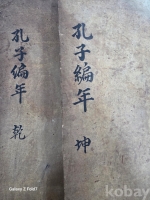 孔子編年 坤
孔子編年 乾
Galaxy Z Fold7
kobay